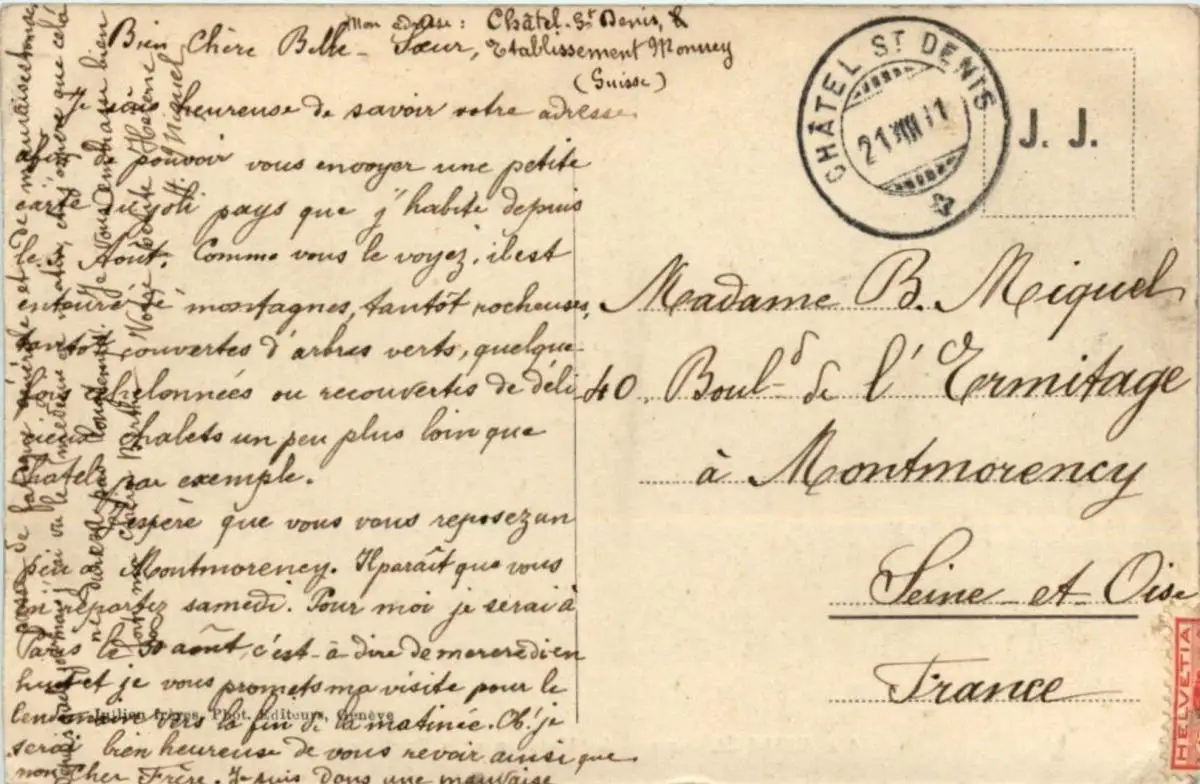 Mon adresse: Châtel-St Denis,
Etablissement Monney
(Suisse)
Bien Chère Belle-Sœur,
Je suis heureuse de savoir votre adresse
afin de pouvoir vous envoyer une petite
carte du joli pays que j'habite depuis
le Août. Comme vous le voyez, il est
entouré de montagnes, tantôt rocheuses,
tantôt couvertes d'arbres verts, quelque
fois échelonnées ou recouvertes de déli
cieux chalets un peu plus loin que
Châtel par exemple.
J'espère que vous vous reposez un
peu à Montmorency. Il paraît que vous
en repartez samedi. Pour moi je serai à
Paris le 30 août, c'est-à-dire de mercredi en
huit et je vous promets ma visite pour le
lendemain vers la fin de la matinée. Oh! je
serai bien heureuse de vous revoir ainsi que
mon Cher Frère. Je suis dans une mauvaise
passe de fatigue générale et de
mieux ce matin, et j'espère que cela
ne durera pas longtemps. Je vous embrasse bien
Votre petite Hélène
Miquel
CHÂTEL ST DENIS
21 VIII 11
J. J.
Madame B. Miquel
40, Boul-d de l'Ermitage
à Montmorency
Seine-et-Oise
France
Jullien frères, Phot. Editeurs, Genève
HELVETIA